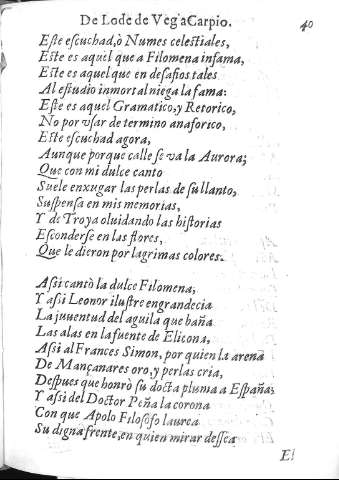 De Lode de Veg'a Carpio.
40
Este escuchad, ò Numes celestiales,
Este es aquel que a Filomena infama,
Este es aquel que en desafios tales
Al estudio inmortal niega la fama:
Este es aquel Gramatico, y Retorico,
No por vsar de termino anaforico,
Este escuchad agora,
Aunque porque calle se va la Aurora;
Que con mi dulce canto
Suele enxugar las perlas de su llanto,
Suspensa en mis memorias,
Y de Troya oluidando las historias
Esconderse en las flores,
Que le dieron por lagrimas colores.
Assi cantò la dulce Filomena,
Y assi Leonor ilustre engrandecia
La juuentud del aguila que baña
Las alas en la fuente de Elicona,
Assi al Frances Simon, por quien la arena
De Mançanares oro, y perlas cria,
Despues que honrò su docta pluma a España;
Y assi del Doctor Peña la corona
Con que Apolo Filosofo laurea
Su digna frente, en quien mirar dessea
El